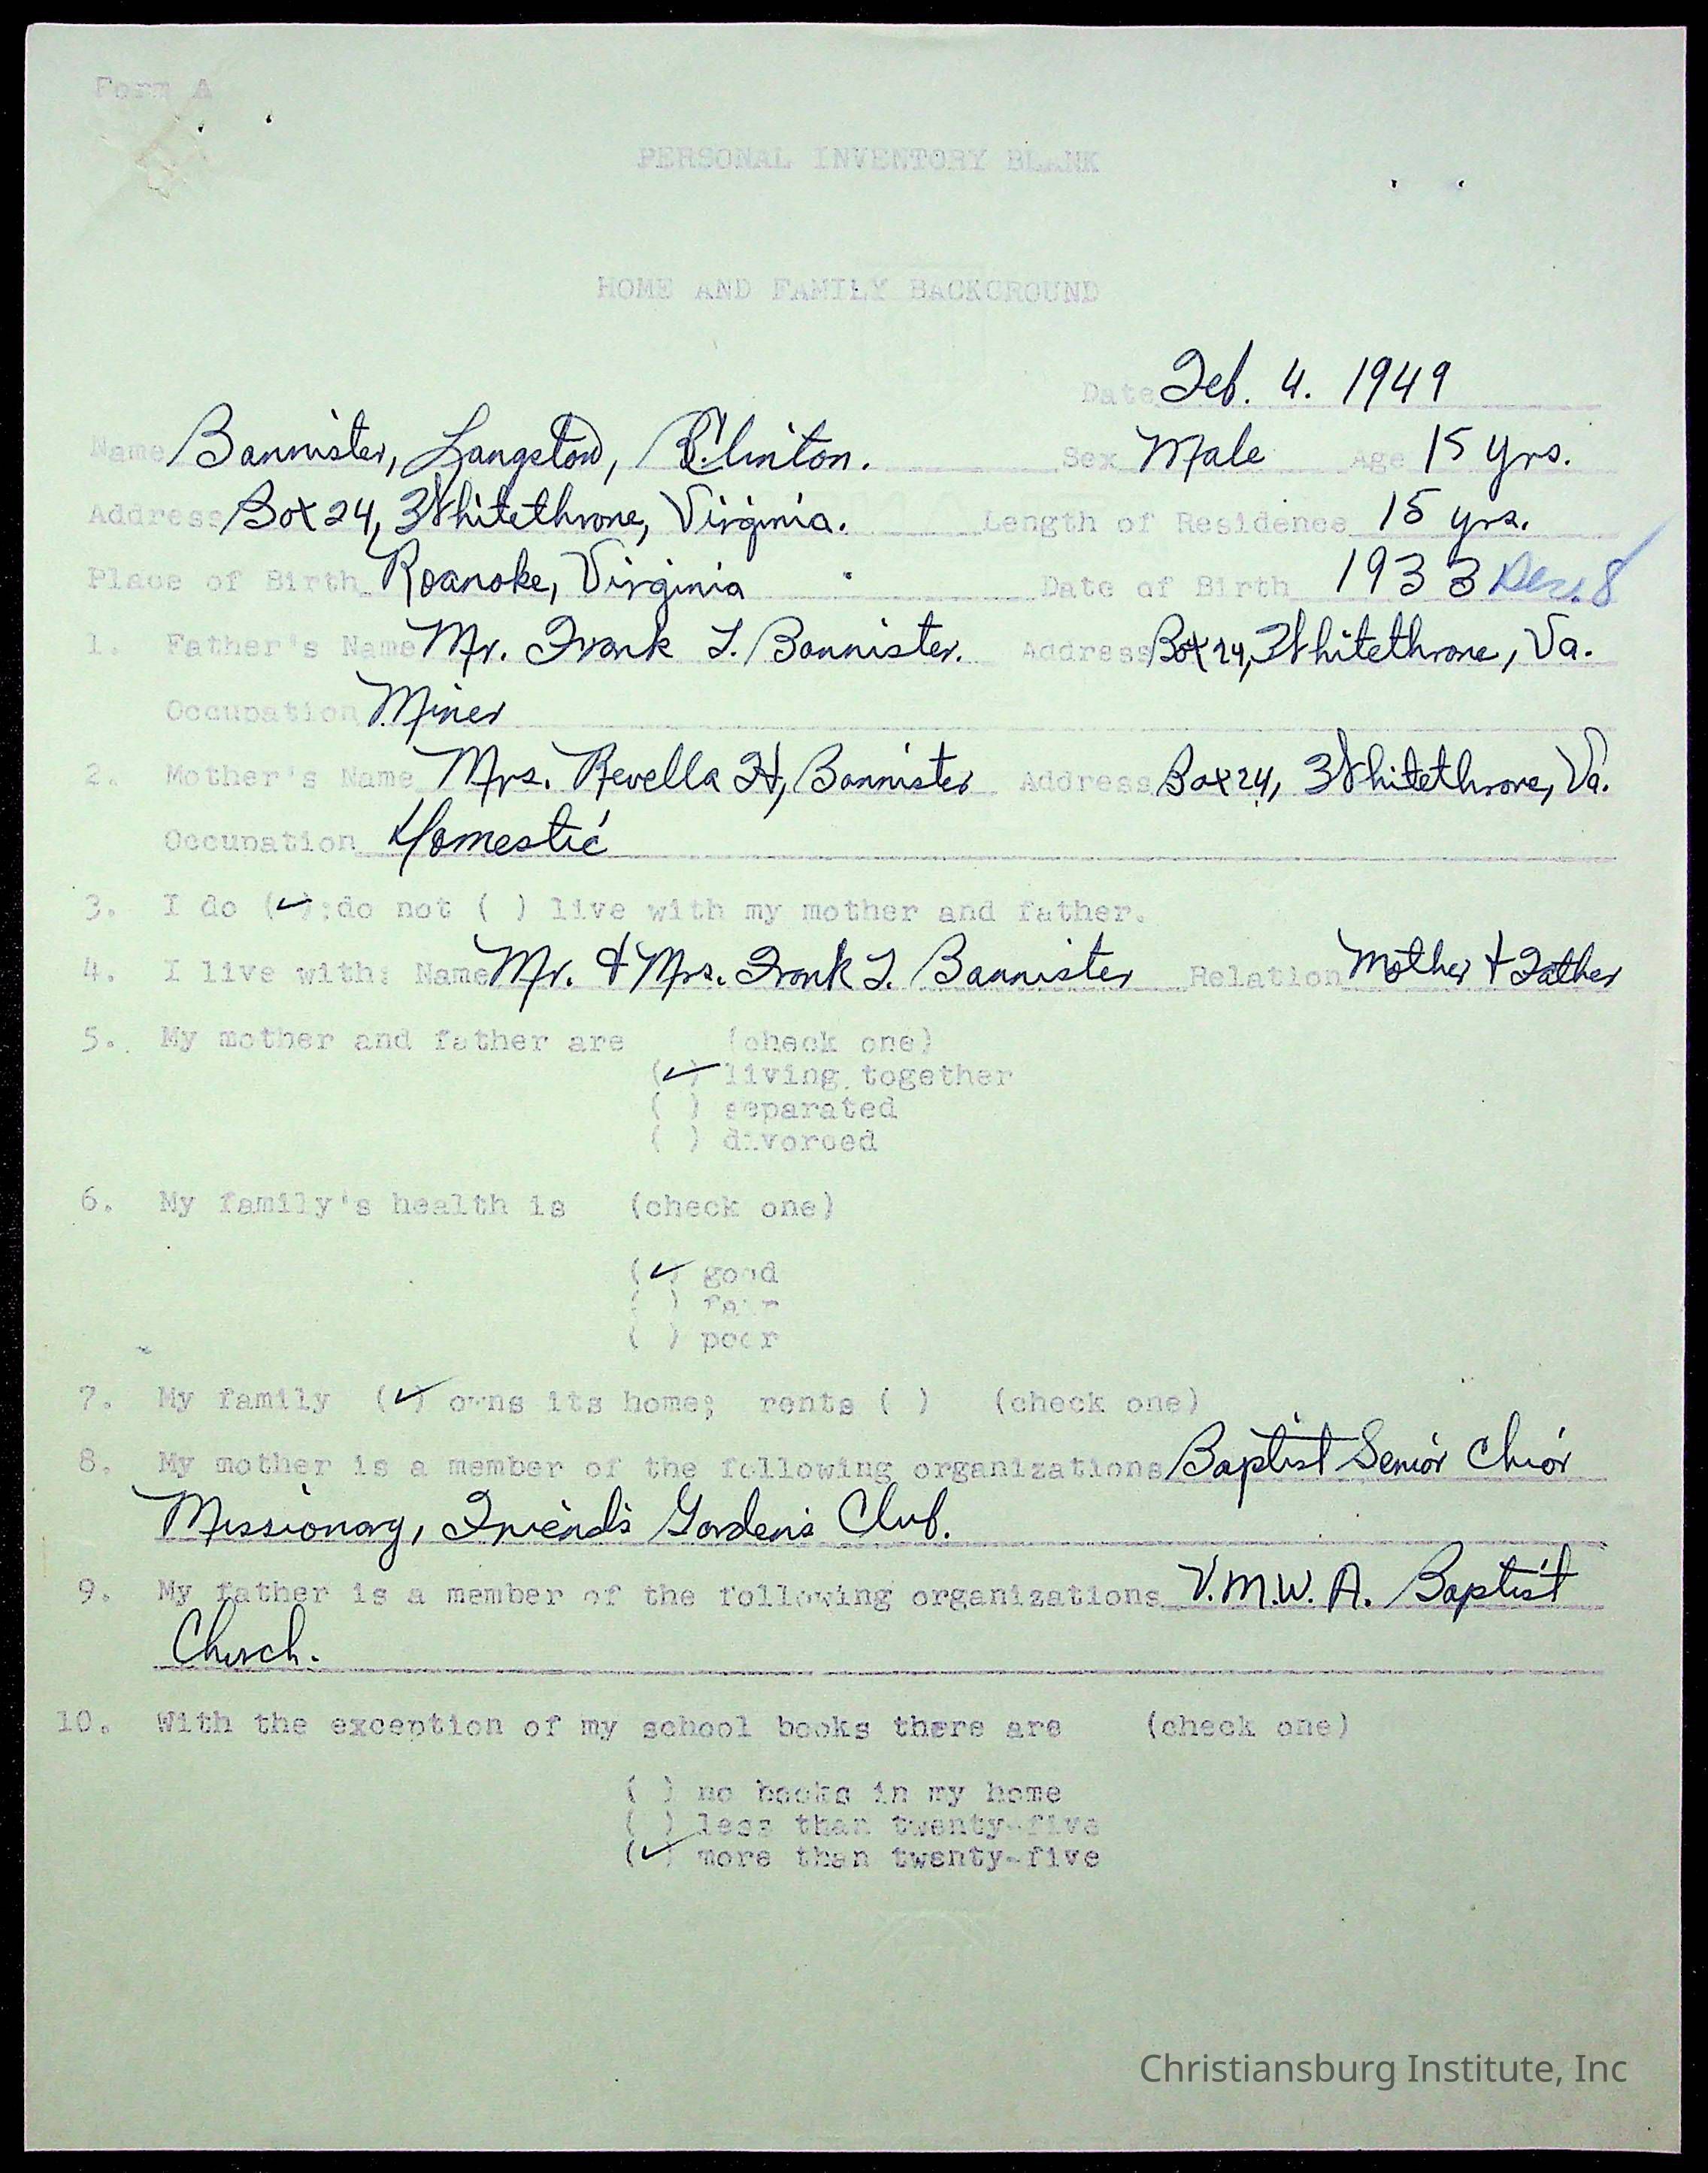 Form A
PERSONAL INVENTORY BLANK
HOME AND FAMILY BACKGROUND
Date Feb. 4. 1949
Name Bannister, Langston, Clinton. Sex Male Age 15 yrs.
Address Box 24, Whitethrone, Virginia. Length of Residence 15 yrs.
Place of Birth Roanoke, Virginia Date of Birth 1933 Dec. 8
1. Father's Name Mr. Frank L. Bannister. Address Box 24, Whitethrone, Va.
Occupation Miner
2. Mother's Name Mrs. Revella H, Bannister Address Box 24, Whitethrone, Va.
Occupation Homestic
3. I do (✓);do not ( ) live with my mother and father.
4. I live with: Name Mr. & Mrs. Frank L. Bannister Relation Mother & Father
5. My mother and father are (check one)
(✓) living together
( ) separated
( ) divorced
6. My family's health is (check one)
(✓) good
( ) fair
( ) poor
7. My family (✓) owns its home; rents ( ) (check one)
8. My mother is a member of the following organizations Baptist Senior Chior
Missionary, Friend's Garden's Club.
9. My father is a member of the following organizations V.M.W.A. Baptist
Church.
10. With the exception of my school books there are (check one)
( ) no books in my home
( ) less than twenty-five
(✓) more than twenty-five
Christiansburg Institute, Inc